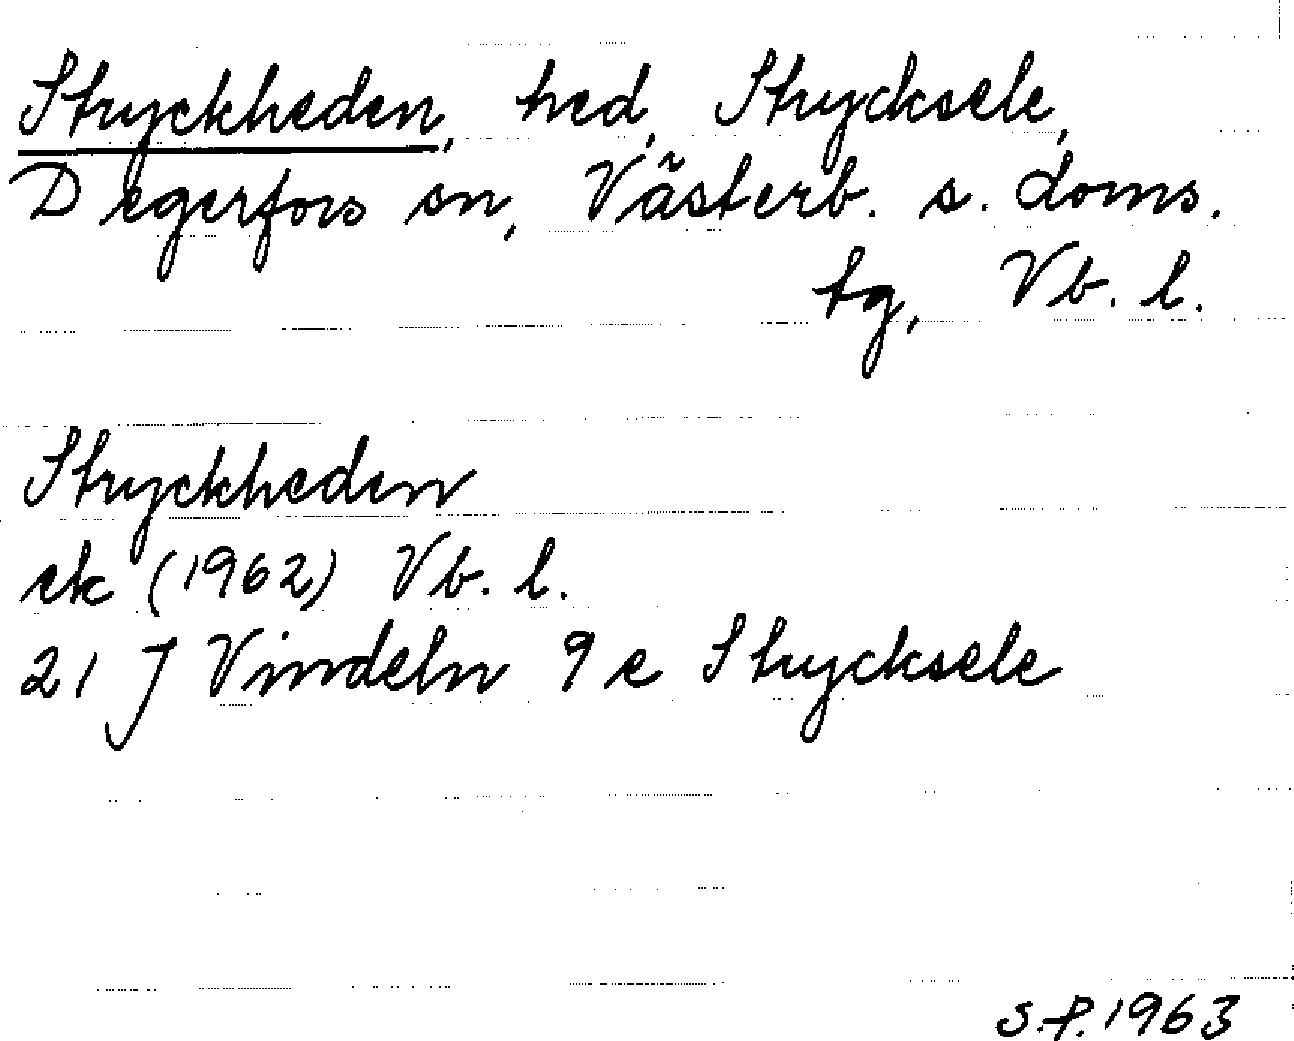 Stryckheden, hed, Strycksele,
Degerfors sn, Västerb. s. doms.
tg, Vb. l.
Stryckheden
ek (1962) Vb. l.
21 J Vindeln 9 e Strycksele
S.P. 1963